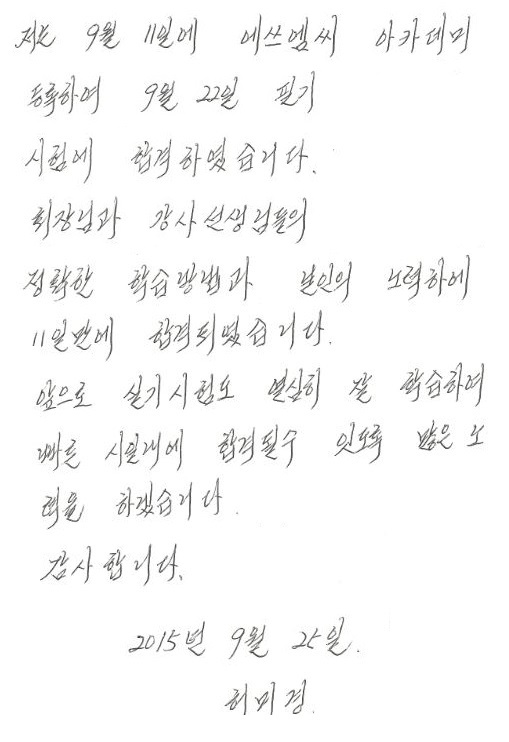 저는 9월 11일에 에쓰엠씨 아카데미
등록하여 9월 22일 필기
시험에 합격하였습니다.
회장님과 강사선생님들의
정확한 학습방법과 본인의 노력하에
11일만에 합격되였습니다.
앞으로 실기시험도 열심히 잘 학습하여
빠른 시일래에 합격될수 잇도록 많은 노
력을 하겠습니다.
감사합니다.
2015년 9월 25일.
허미경.